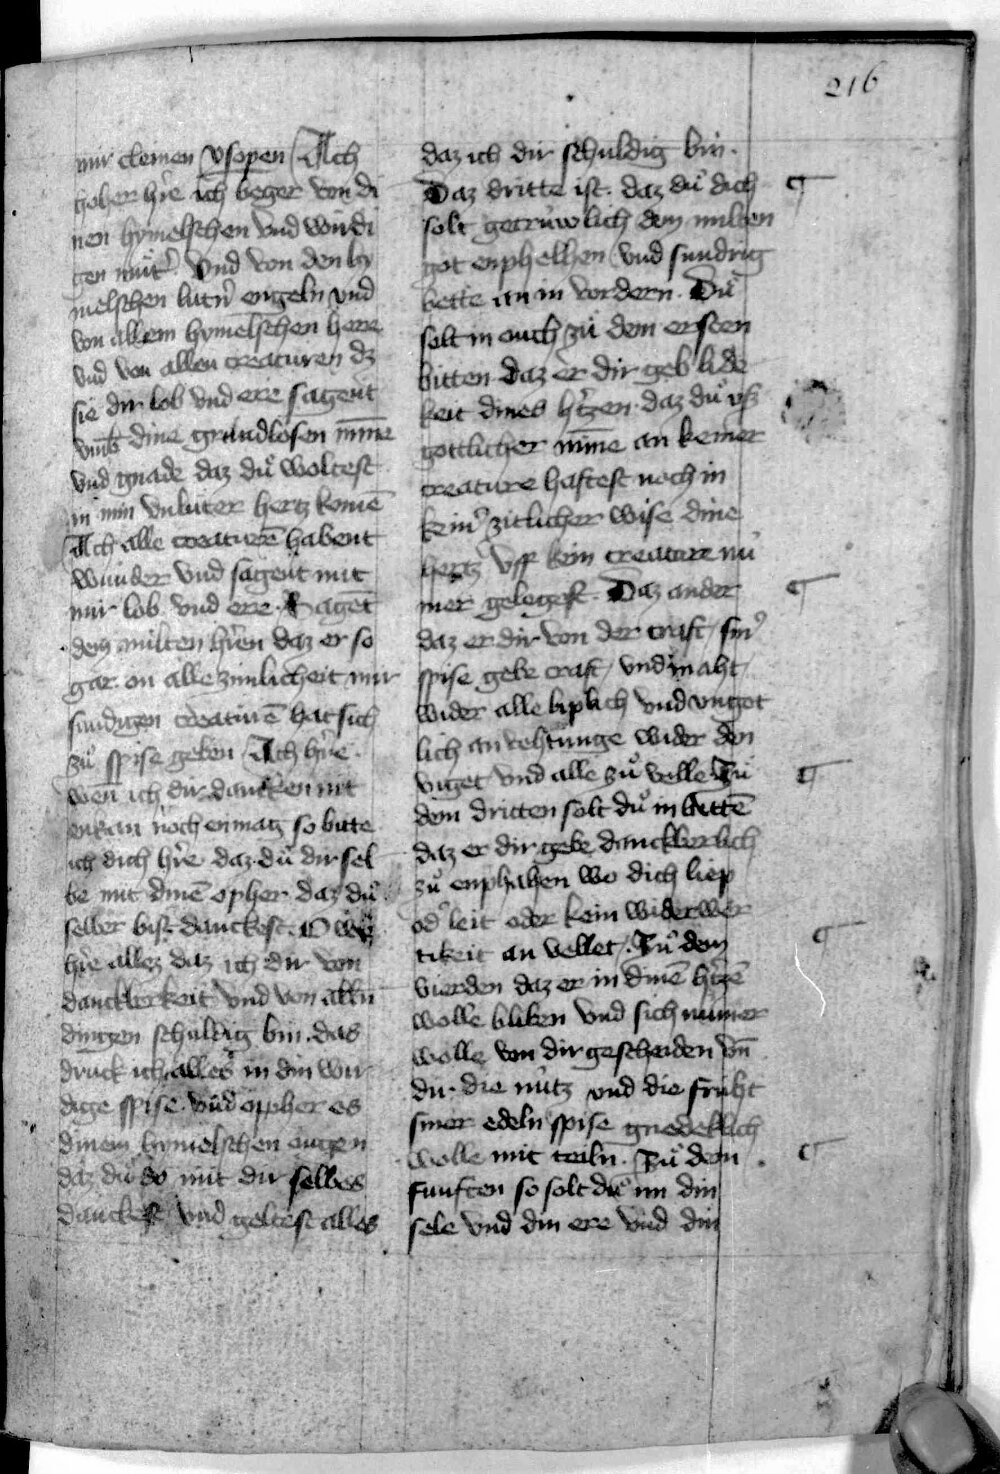 216
mir cleinen ysopen Ach
hoher hr̄e ich beger von di
nen hymelschen vnd wirdi
gen mut̄ vnd von den hy
melschen lutn̄ engeln vnd
von allem hymelschen here
vnd von allen creaturen dz
sie dir lob vnd ere sagent
vmb dine grundlosen mīne
vnd gnade daz dů woltest
in min vnluter hertz komē
Ach alle creaturē habent
wunder vnd sagent mit
mir lob vnd ere. Sagēt
dem milten hr̄en daz er so
gar on alle zimlicheit mir
sundigen creaturē hat sich
zů spise geben Ach hr̄e.
wen ich dir dancken nit
enkan noch enmag so bitte
ich dich hr̄e daz dů dir sel
be mit dinē opher daz dů
selber bist danckest. O
hr̄e allez daz ich dir von
danckberkeit vnd von alln̄
dingen schuldig bin. das
druck ich alles in din wir
dige spise. vnd oppher es
dinem hymelschen ougen
daz dů do mit dir selbes
danckest vnd geltest alles
daz ich dir schuldig bin.
Daz dritte ist. daz dů dich
solt getrůwlich dem milten
got enphelhen vnd sundrig
bette an in vordern. Dů
solt in ouch zů dem ersten
bitten daz er dir geb lide
keit dines h̄tzen. daz dů vsz
gottlicher mīne an keiner
creature haftest noch in
kein̄ zitlicher wise dine
hertz vff kein creature nů
mer gelegest. Daz ander
daz er dir von der craft sin̄
spise gebe craft vnd maht
wider alle liplich vnd vnget
lich anvehtunge wider den
viget vnd alle zů velle. Zů
dem dritten solt dů in bittē
daz er dir gebe danckberlich
zů enphahen wo dich liep
od̄ leit oder kein widerwer
tikeit an vellet. Zů dem
vierden daz er in dinē h̄tzē
wolle bliben vnd sich nůmer
wolle von dir gescheiden vn̄
dir die nůtz vnd die fruht
siner edeln spise gnedeklich
wolle mit teiln̄. Zů dem
funften so solt dů im din
sele vnd din ere vnd din